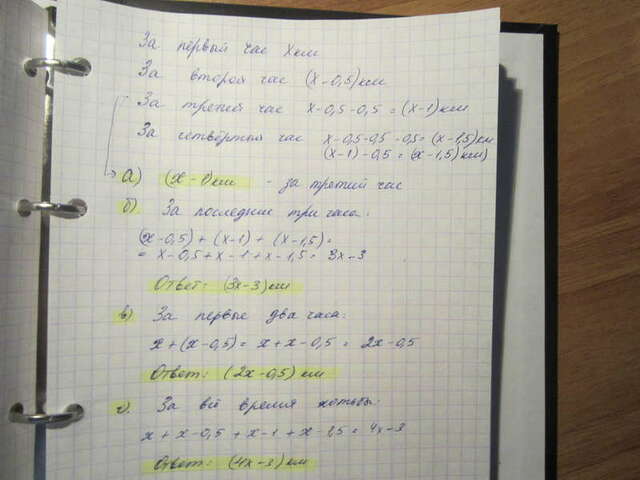 За первый час x км
За второй час (x-0,5) км
За третий час x-0,5-0,5 = (x-1) км
За четвёртый час x-0,5-0,5-0,5 = (x-1,5) км
(x-1)-0,5 = (x-1,5) км)
а) (x-1) км - за третий час
б) За последние три часа:
(x-0,5) + (x-1) + (x-1,5) =
= x-0,5+x-1+x-1,5 = 3x-3
Ответ: (3x-3) км
в) За первые два часа:
x+(x-0,5) = x+x-0,5 = 2x-0,5
Ответ: (2x-0,5) км
г) За всё время ходьбы:
x+x-0,5 + x-1 + x-1,5 = 4x-3
Ответ: (4x-3) км